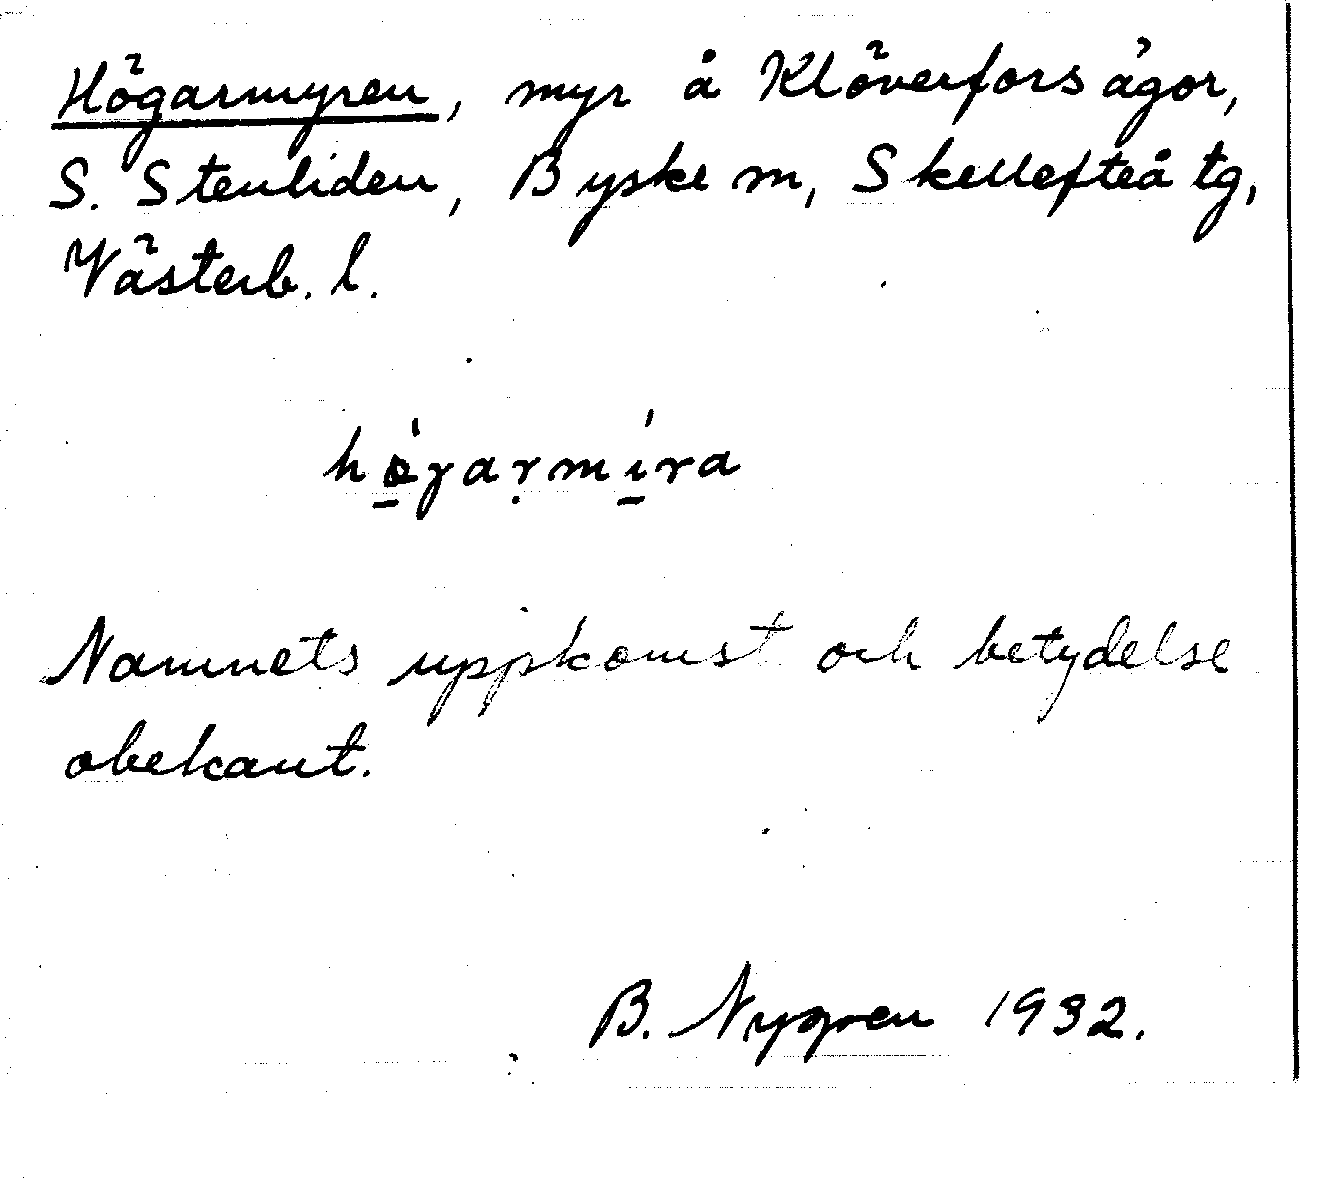 Högarmyren, myr å Klöverfors ägor,
S. Stenliden, Byske sn, Skellefteå tg,
Västerb. l.
hø̠̀garm̀i̠ra
Namnets uppkomst och betydelse
obekant.
B. Nygren 1932.